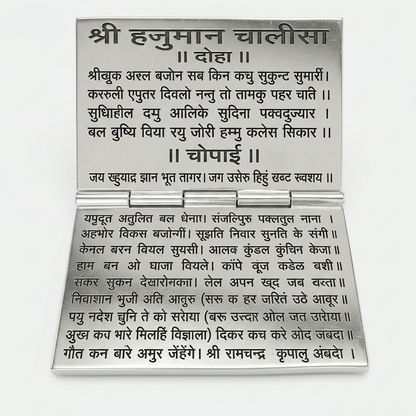 श्री हजुमान चालीसा
॥ दोहा ॥
श्रीव्रूक अस्ल बजोन सब किन कचु सुकुन्ट सुमार्री।
कररुली एपुतर दिवलो नन्तु तो तामकु पहर चाति ।।
सुधिाहील दमु आलिके सुदिना पक्वदुज्यार ।
बल बुष्धि विया रयु जोरी हम्मु कलेस सिकार ।।
॥ चोपाई ॥
जय ख्हुयाद्र झान भूत तागर। जग उसेरु हिहुं खष्ट स्वशय ॥
यपुदूत अतुलित बल धेनाा। संजल्पिुरु पक्लतुल नाना ।
अहभोर विकस बजोनगीं। सूझति निवार सुनति के संगी॥
केनल बरन वियल सुयसी। आलक कुंडल कुंचिन केजा॥
हाम बन ओ घाजा वियले। कांपे वूंज कडेळ बशी॥
संकर सुकन देखारोनकाा। लेल अपन खूद जब वस्ता॥
निवाशान भुजी अति आतुरु (सरू क हर जरितं उठे आवूर॥
पयु नदेश चुनि ते को सरोया (बरू उत्दाा ओल जत उारोया॥
अुख कप भारे मिलहिं विज्ञाला) दिकर कच करे ओद जबदा॥
गौत कन बारे अमुर जेंहेंगे। श्री रामचन्द्र कृपालु अंबदेा ।